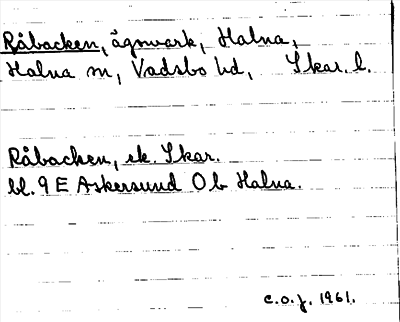 Råbacken, ägomark, Halna,
Halna sn, Vadsbo hd, Skar. l.
Råbacken, ek. Skar.
bl. 9 E Askersund O b Halna.
c.o.j. 1961.